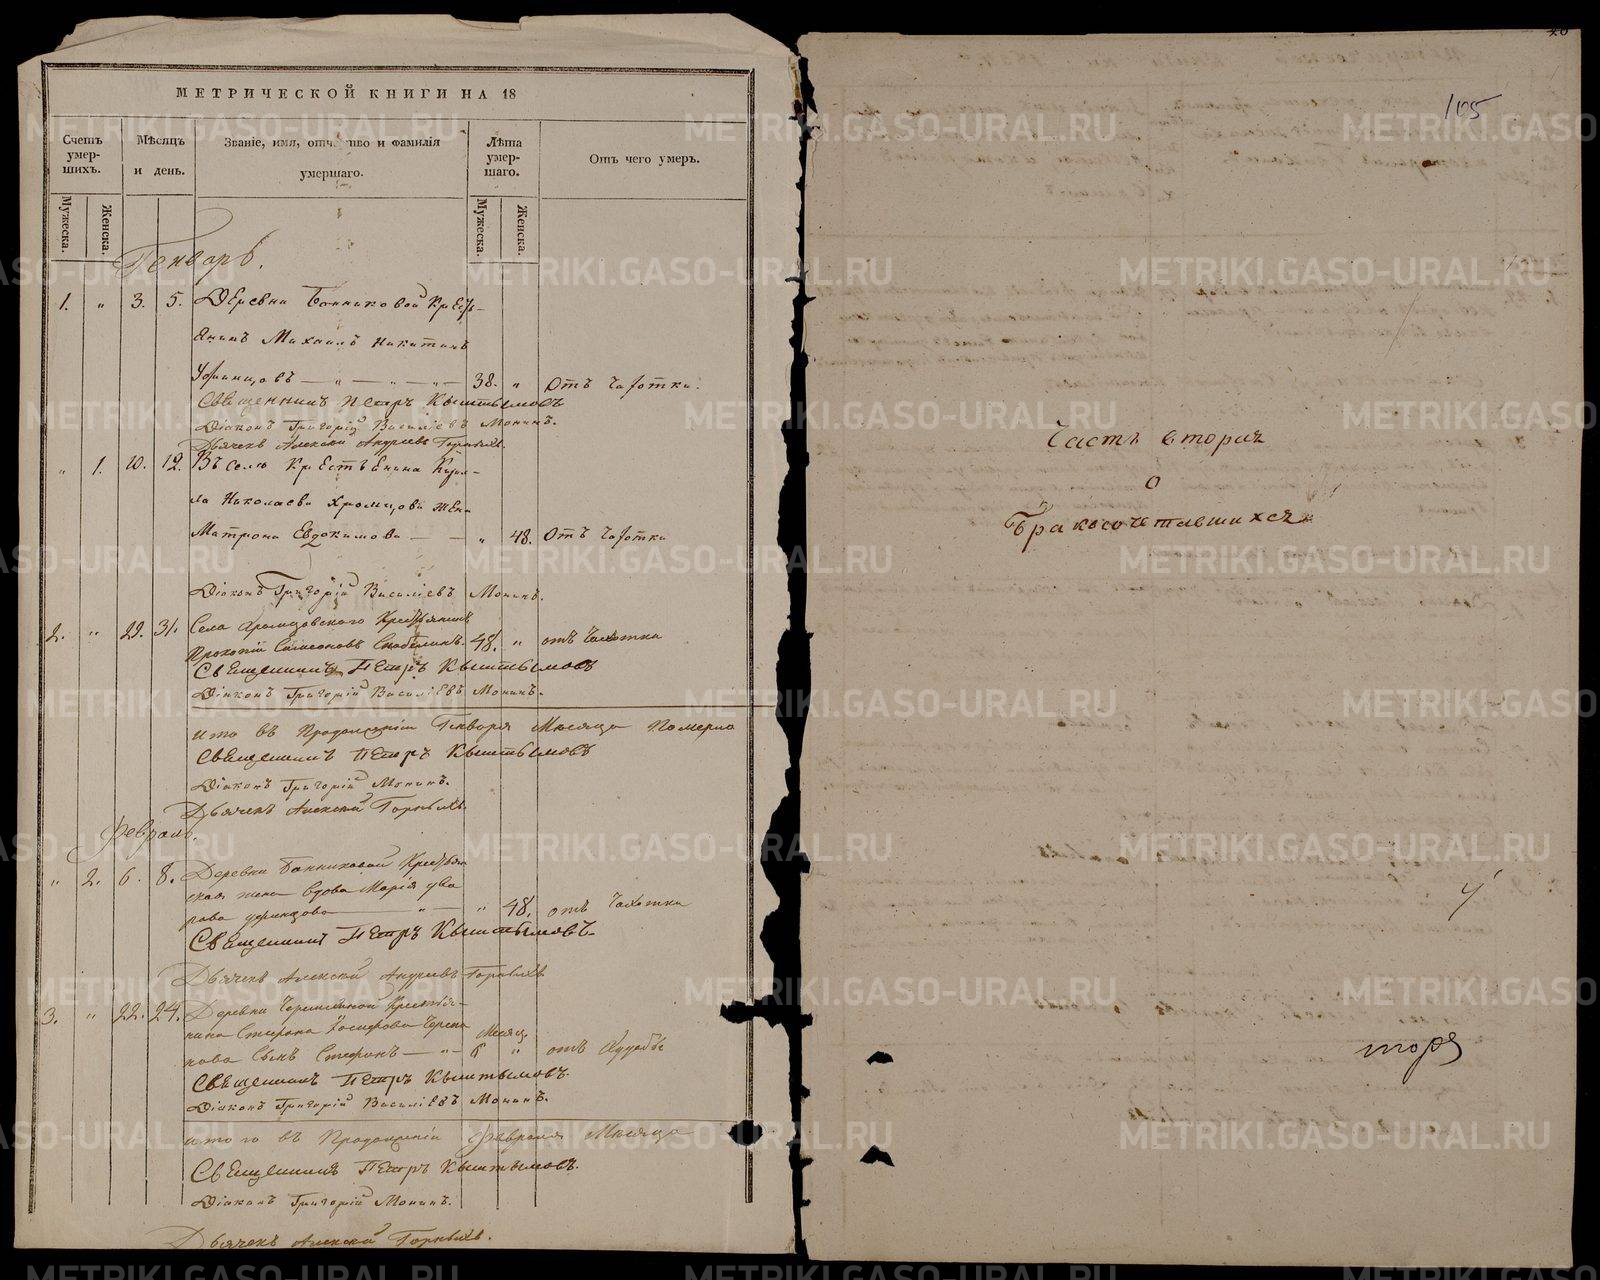 МЕТРИЧЕСКОЙ КНИГИ НА 18
Счетъ умер-шихъ.
Мѣсяцъ и день.
Званіе, имя, отчество и фамилія умершаго.
Лѣта умер-шаго.
Отъ чего умеръ.
Мужеска.
Женска.
Мужеска.
Женска.
Генварь.
1. " 3. 5. Деревни Банниковой Кресть-
янинъ Михаилъ Никитинъ
Уфинцовъ — " — " — " — 38. " Отъ чахотки.
Священникъ Петръ Кыштымовъ
Діаконъ Григорій Василіевъ Монинъ.
Дьячекъ Алексѣй Андреевъ Горныхъ.
" 1. 10. 12. Въ селѣ Крестьянина Кирил-
ла Николаева Хромцова жена
Матрона Евдокимова — — " 48. Отъ чахотки
Діаконъ Григорій Василіевъ Монинъ.
2. " 29. 31. Села Хромцовского Крестьянинъ
Прокопій Симеоновъ 48. " отъ чахотки
Священникъ Петръ Кыштымовъ
Діаконъ Григорій Василіевъ Монинъ.
итого въ Продолженіи Генваря Мѣсяца Померло
Священникъ Петръ Кыштымовъ
Діаконъ Григорій Монинъ.
Дьячекъ Алексѣй Горныхъ.
Февраль.
" 2. 6. 8. Деревни Банниковой Крестьян
ская жена вдова Марія Ува
рова уфинцова — " — " 48. отъ чахотки
Священникъ Петръ Кыштымовъ.
Дьячекъ Алексѣй Андреевъ Горныхъ
3. " 22. 24. Деревни Черепановой Крестья-
нина Стефана Іосифова Черепа
нова сынъ Стефанъ — " — Месяц. 6 " отъ худобы
Священникъ Петръ Кыштымовъ.
Діаконъ Григорій Василіевъ Монинъ.
итого въ Продолженіи февраля Мѣсяца
Священникъ Петръ Кыштымовъ.
Діаконъ Григорій Монинъ.
Дьячекъ Алексѣй Горныхъ.
105
Часть вторая
о
Бракосочетавшихся
METRIKI.GASO-URAL.RU